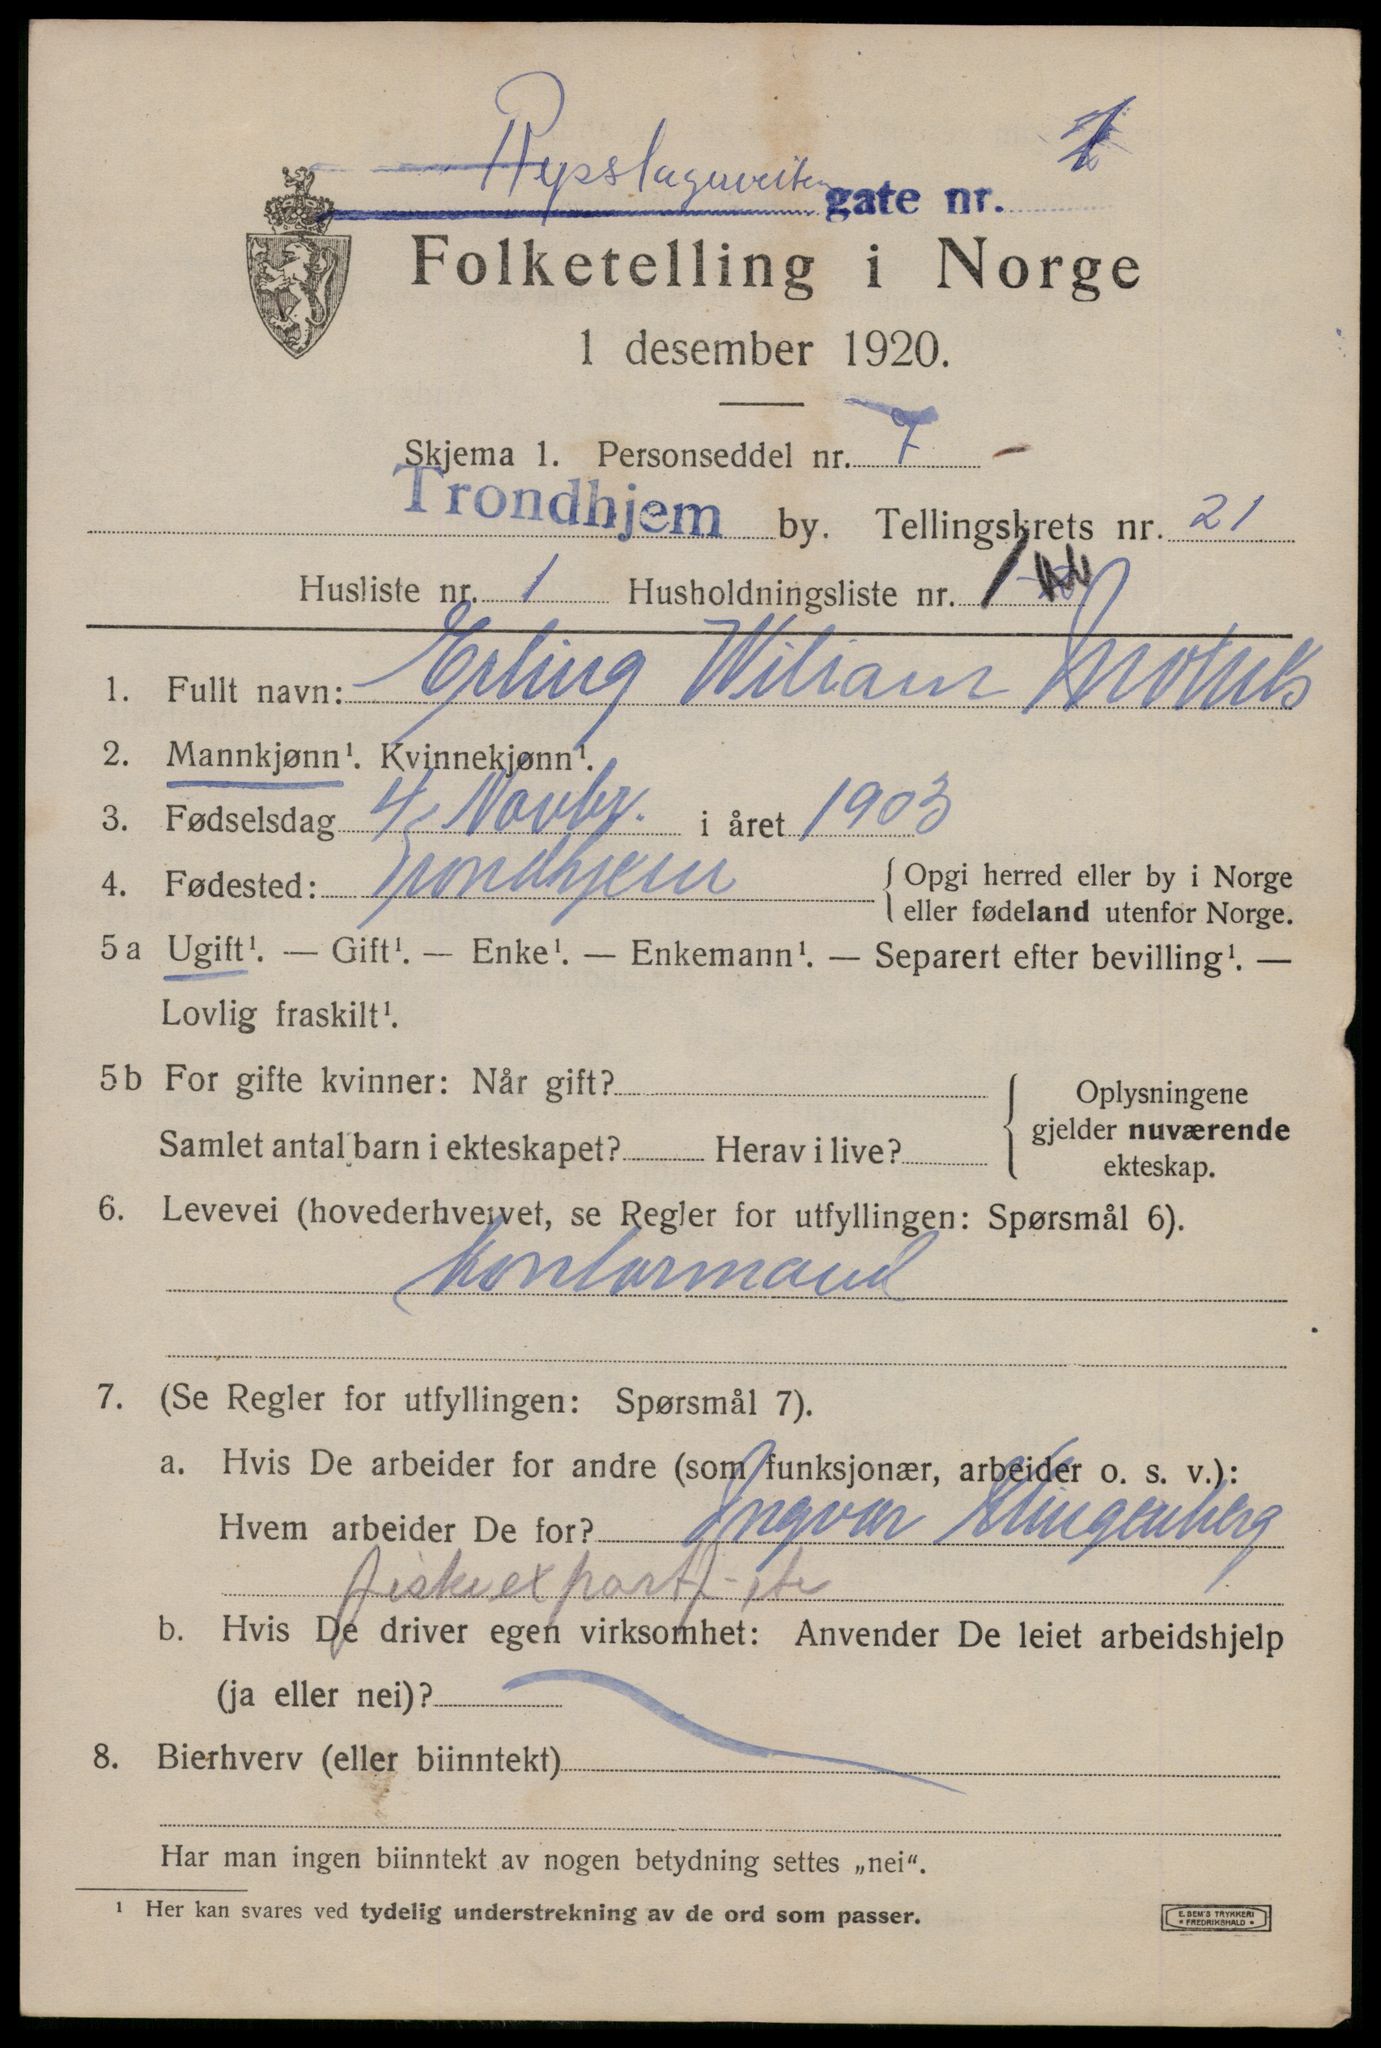 Repslagerveiten gate nr. 1
Folketelling i Norge
1 desember 1920.
Skjema 1. Personseddel nr. 7
Trondhjem by. Tellingskrets nr. 21
Husliste nr. 1 Husholdningsliste nr. 1
1. Fullt navn: Erling Wiliam
2. Mannkjønn¹. Kvinnekjønn¹.
3. Fødselsdag 4 Novbr. i året 1903
4. Fødested: Trondhjem { Opgi herred eller by i Norge
eller fødeland utenfor Norge.
5a Ugift¹. — Gift¹. — Enke¹. — Enkemann¹. — Separert efter bevilling¹. —
Lovlig fraskilt¹.
5b For gifte kvinner: Når gift?
Samlet antal barn i ekteskapet? Herav i live?
{ Oplysningene
gjelder nuværende
ekteskap.
6. Levevei (hovederhvervet, se Regler for utfyllingen: Spørsmål 6).
Kontormand
7. (Se Regler for utfyllingen: Spørsmål 7).
a. Hvis De arbeider for andre (som funksjonær, arbeider o. s. v.):
Hvem arbeider De for? Ingvar Klingenberg
fiskeexport
b. Hvis De driver egen virksomhet: Anvender De leiet arbeidshjelp
(ja eller nei)?
8. Bierhverv (eller biinntekt)
Har man ingen biinntekt av nogen betydning settes „nei“.
¹ Her kan svares ved tydelig understrekning av de ord som passer.
E. SEM'S TRYKKERI
• FREDRIKSHALD •